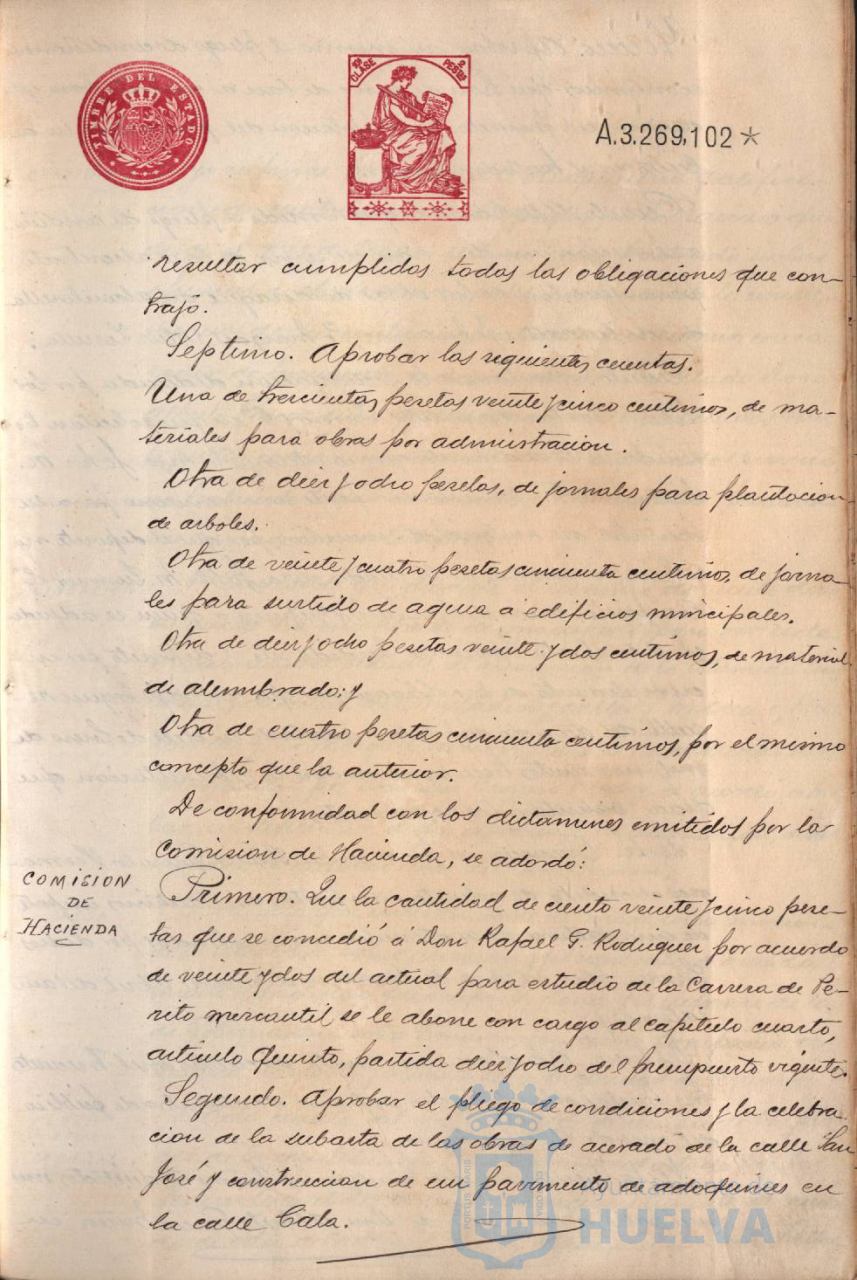 TIMBRE DEL ESTADO
10ª CLASE 2 PESETAS
A.3.269,102 *
resultar cumplidas todas las obligaciones que con-
trajo.
Septimo. Aprobar las siguientes cuentas.
Una de trescientas pesetas veinte y cinco centimos, de ma-
teriales para obras por administracion.
Otra de diez y ocho pesetas, de jornales para plantacion
de arboles.
Otra de veinte y cuatro pesetas cincuenta centimos, de jorna-
les para surtido de agua a edificios municipales.
Otra de diez y ocho pesetas veinte y dos centimos, de material
de alumbrado; y
Otra de cuatro pesetas cincuenta centimos, por el mismo
concepto que la anterior.
De conformidad con los dictamenes emitidos por la
Comision de Hacienda, se acordó:
COMISION
DE
HACIENDA
Primero. Que la cantidad de ciento veinte y cinco pese-
tas que se concedió á Don Rafael G. Rodriguez por acuerdo
de veinte y dos del actual para estudio de la Carrera de Pe-
rito mercantil se le abone con cargo al capitulo cuarto,
articulo quinto, partida diez y ocho del presupuesto vigente.
Segundo. Aprobar el pliego de condiciones y la celebra
cion de la subasta de las obras de acerado de la calle San
José y construccion de un pavimento de adoquines en
la calle Cala.
HUELVA